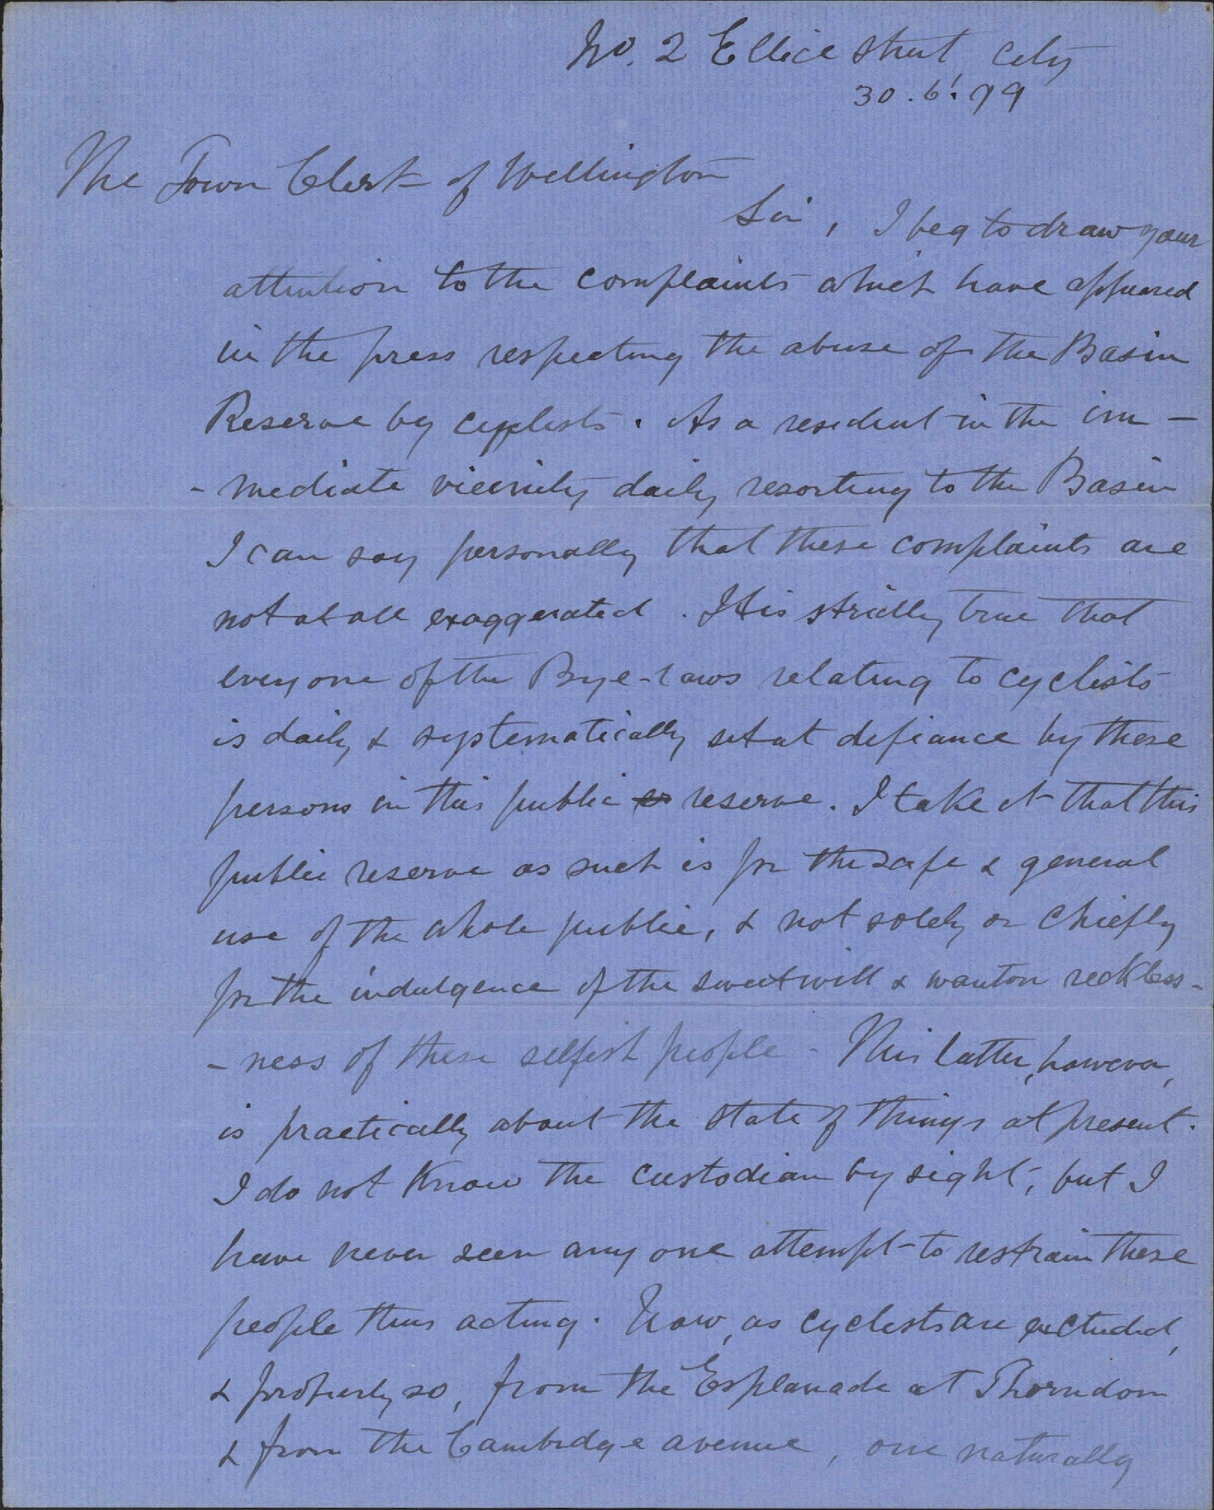 No. 2 Ellice Street City
30.6.'99
The Town Clerk of Wellington
Sir, I beg to draw your
attention to the complaints which have appeared
in the press respecting the abuse of the Basin
Reserve by cyclists. As a resident in the im-
-mediate vicinity daily resorting to the Basin
I can say personally that these complaints are
not at all exaggerated. It is strictly true that
everyone of the Bye-laws relating to cyclists
is daily & systematically set at defiance by these
persons in this public reserve. I take it that this
public reserve as such is for the safe & general
use of the whole public, & not solely or chiefly
for the indulgence of the sweet will & wanton reckless-
-ness of these selfish people. This latter, however,
is practically about the state of things at present.
I do not know the custodian by sight, but I
have never seen any one attempt to restrain these
people thus acting. Now, as cyclists are excluded,
& properly so, from the Esplanade at Thorndon
& from the Cambridge avenue, one naturally